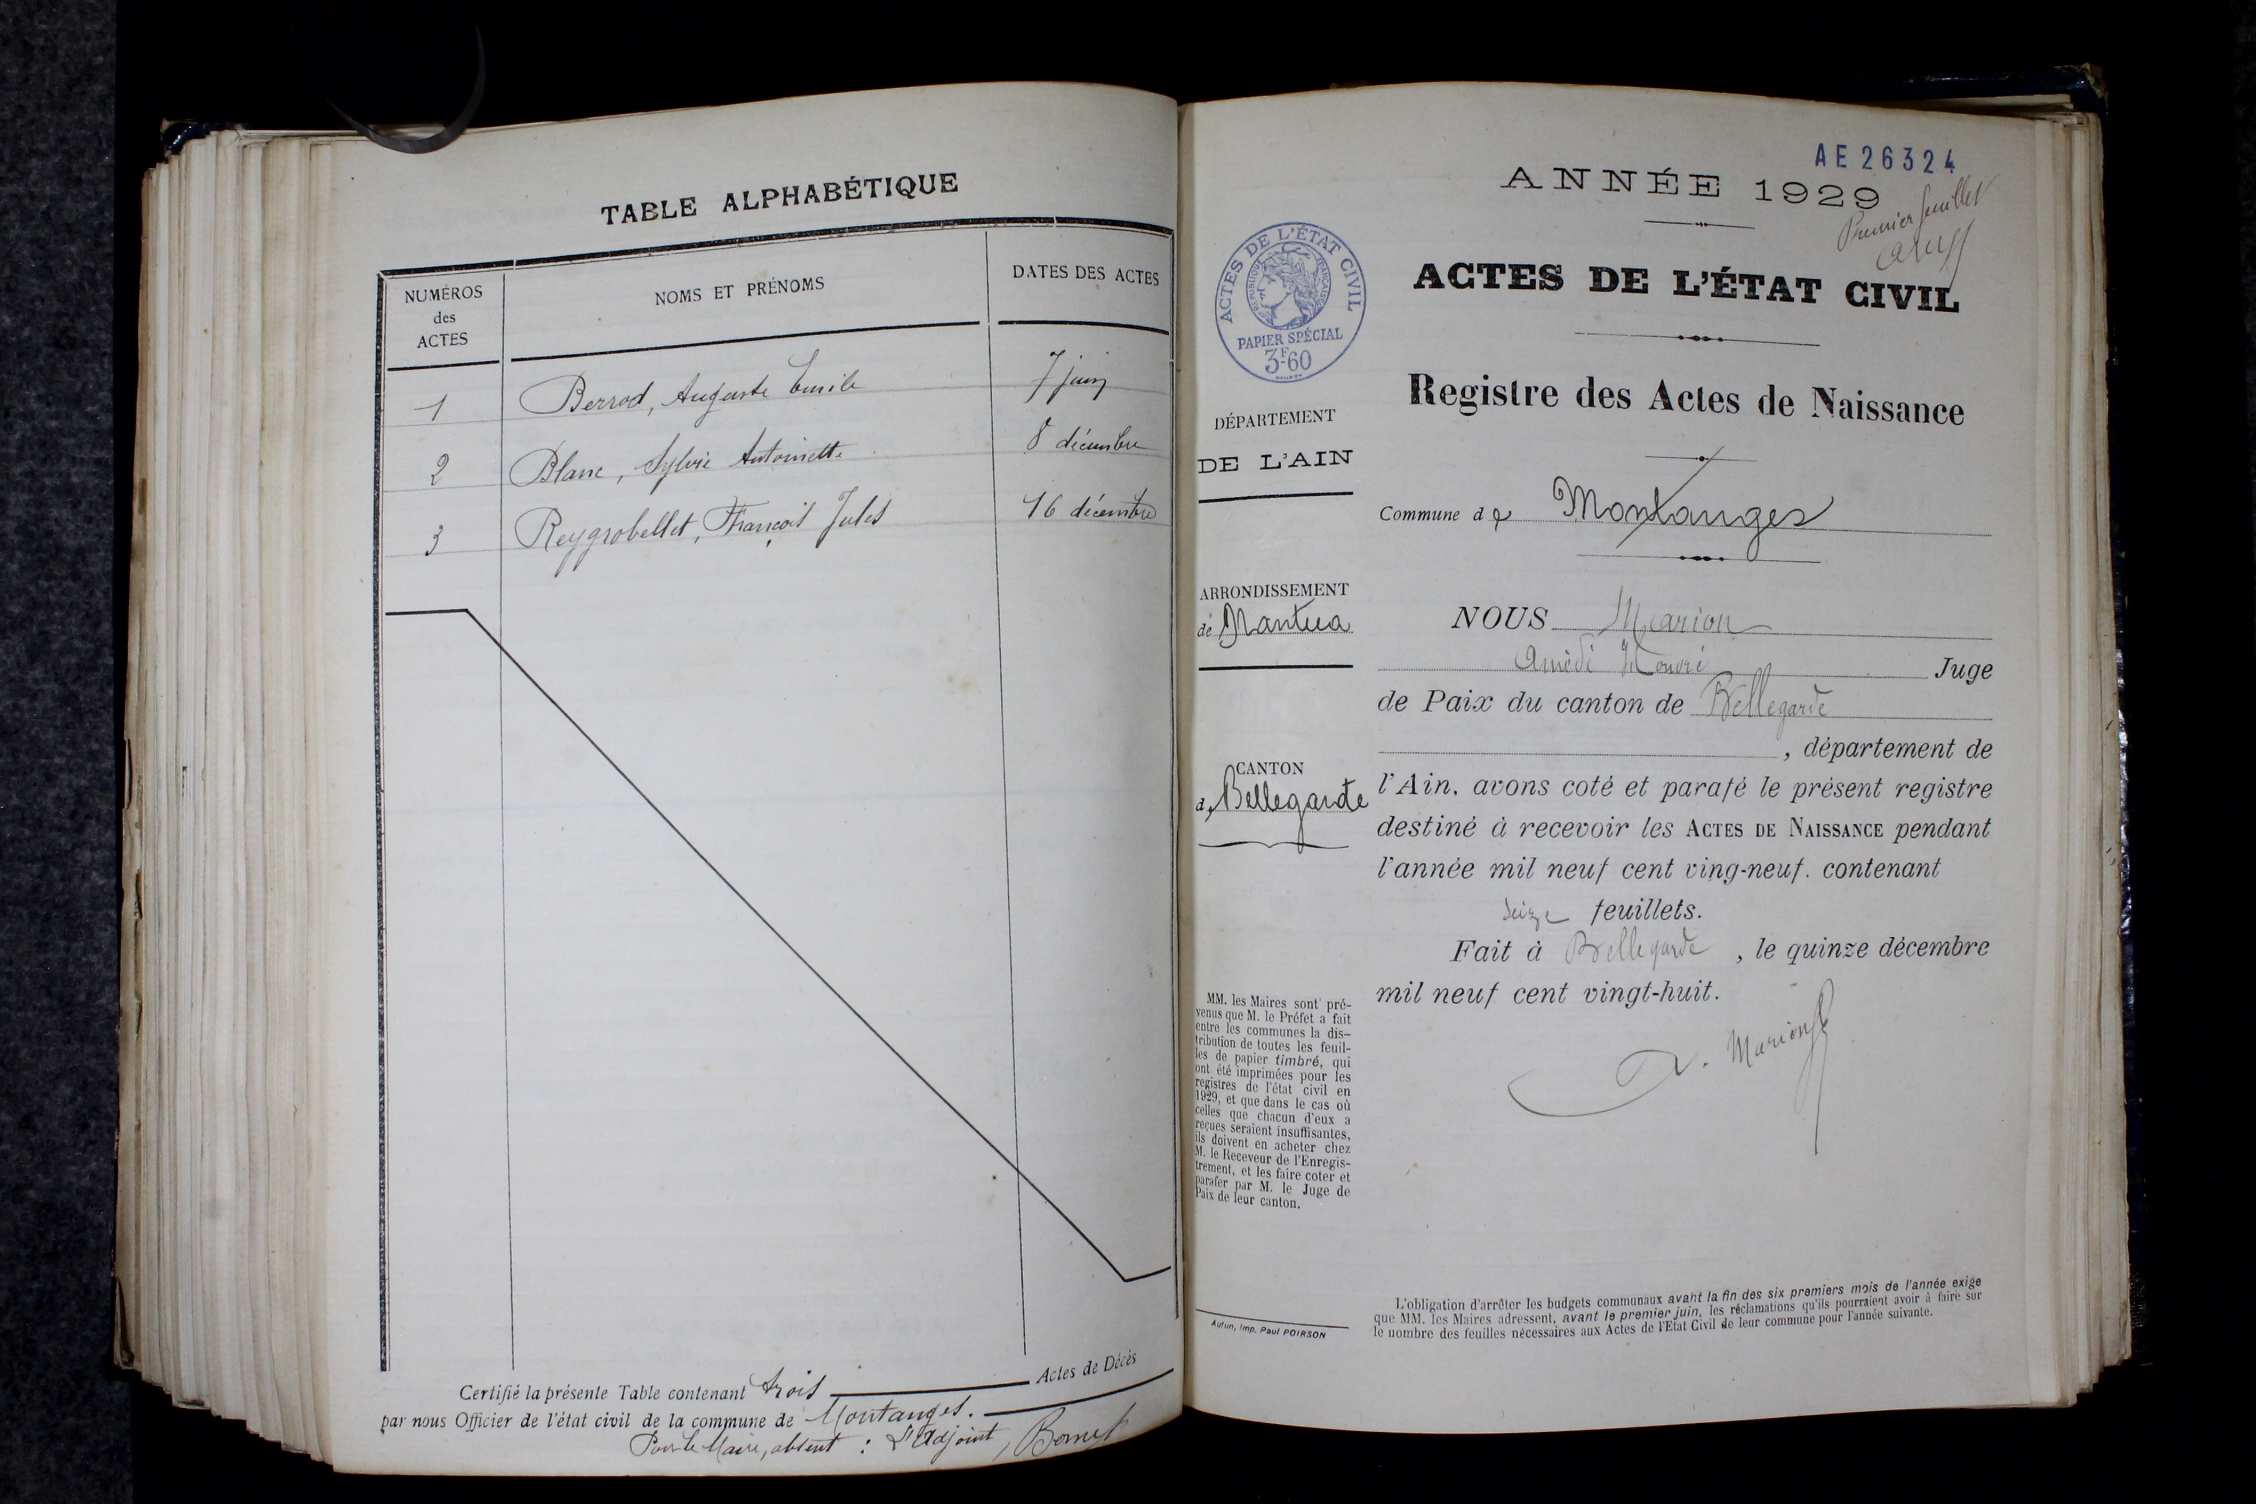 TABLE ALPHABÉTIQUE
NUMÉROS
des
ACTES
NOMS ET PRÉNOMS
DATES DES ACTES
1 Berrod, Auguste Emile 7 juin
2 Blanc, Sylvie Antoinette 8 décembre
3 Reygrobellet, François Jules 16 décembre
Certifié la présente Table contenant trois Actes de Décès
par nous Officier de l'état civil de la commune de Montanges.
Pour le Maire, absent : L'Adjoint, Bornet
AE 26324
ANNÉE 1929
Premier feuillet
ACTES DE L'ÉTAT CIVIL
RÉPUBLIQUE FRANÇAISE
PAPIER SPÉCIAL
3F60
ACTES DE L'ÉTAT CIVIL
Registre des Actes de Naissance
DÉPARTEMENT
DE L'AIN
Commune de Montanges
ARRONDISSEMENT
de Nantua
CANTON
de Bellegarde
NOUS Marion
Amédé Honoré Juge
de Paix du canton de Bellegarde
, département de
l'Ain, avons coté et parafé le présent registre
destiné à recevoir les ACTES DE NAISSANCE pendant
l'année mil neuf cent ving-neuf. contenant
seize feuillets.
Fait à Bellegarde , le quinze décembre
mil neuf cent vingt-huit.
A. Marion
MM. les Maires sont pré-
venus que M. le Préfet a fait
entre les communes la dis-
tribution de toutes les feuil-
les de papier timbré, qui
ont été imprimées pour les
registres de l'état civil en
1929, et que dans le cas où
celles que chacun d'eux a
reçues seraient insuffisantes,
ils doivent en acheter chez
M. le Receveur de l'Enregis-
trement, et les faire coter et
parafer par M. le Juge de
Paix de leur canton.
Autun, Imp. Paul POIRSON
L'obligation d'arrêter les budgets communaux avant la fin des six premiers mois de l'année exige
que MM. les Maires adressent, avant le premier juin, les réclamations qu'ils pourraient avoir à faire sur
le nombre des feuilles nécessaires aux Actes de l'Etat Civil de leur commune pour l'année suivante.